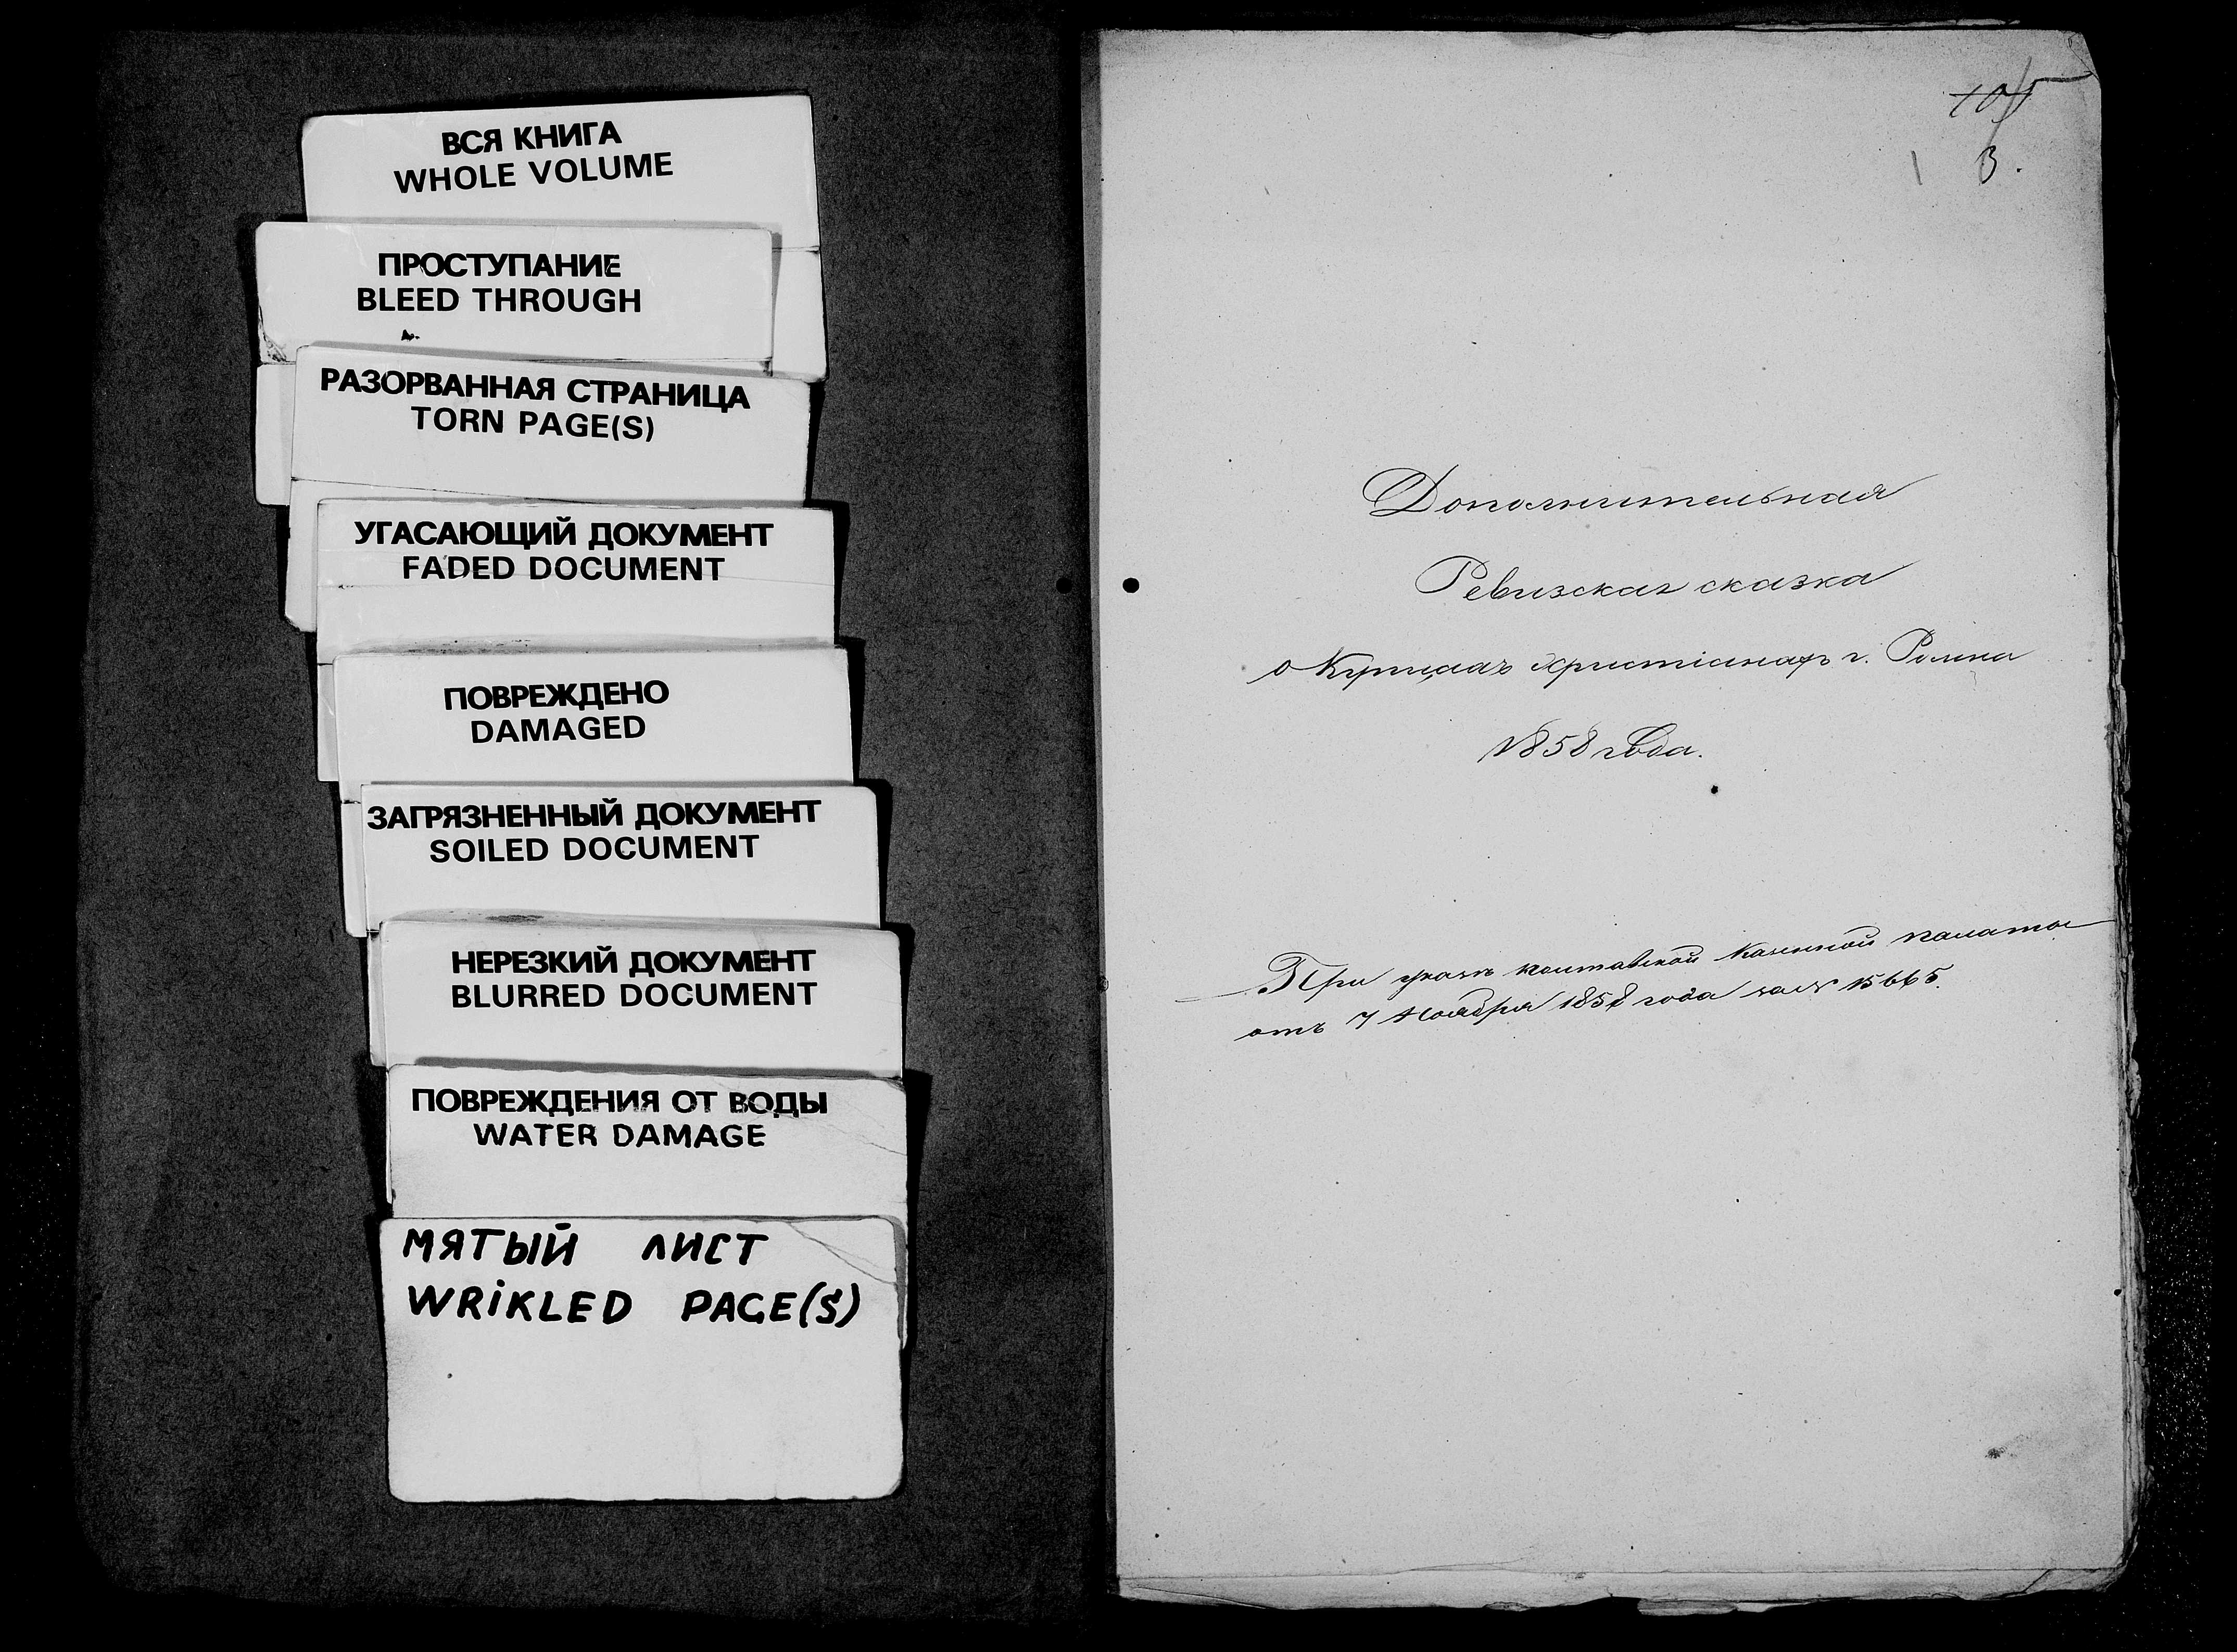 ВСЯ КНИГА
WHOLE VOLUME
ПРОСТУПАНИЕ
BLEED THROUGH
РАЗОРВАННАЯ СТРАНИЦА
TORN PAGE(S)
УГАСАЮЩИЙ ДОКУМЕНТ
FADED DOCUMENT
ПОВРЕЖДЕНО
DAMAGED
ЗАГРЯЗНЕННЫЙ ДОКУМЕНТ
SOILED DOCUMENT
НЕРЕЗКИЙ ДОКУМЕНТ
BLURRED DOCUMENT
ПОВРЕЖДЕНИЯ ОТ ВОДЫ
WATER DAMAGE
МЯТЫЙ ЛИСТ
WRIKLED PAGE(S)
Дополнительная
Ревизская сказка
о Купцахъ христіанахъ г. Ромна
1858 года.
При указѣ полтавской Казенной палаты
отъ 7 Ноября 1858 года за № 15665.